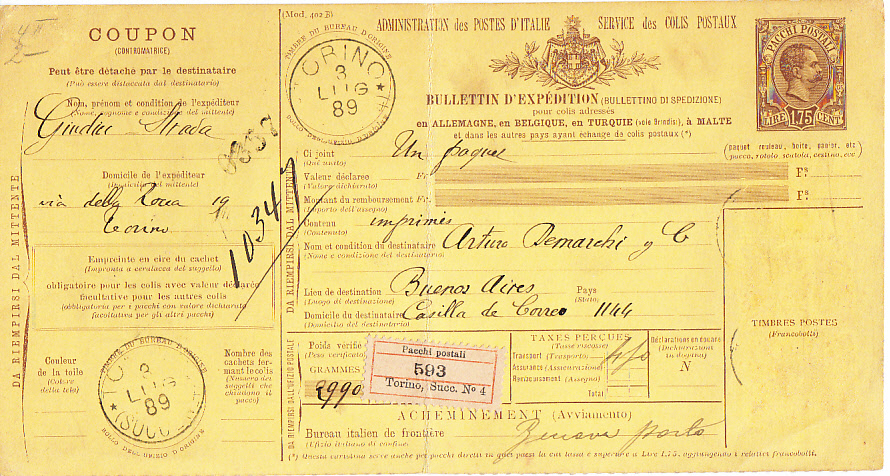 COUPON
(CONTROMATRICE)
Peut être détaché par le destinataire
(Può essere distaccata dal destinatario)
Nom, prénom et condition de l'expéditeur
(Nome, cognome e condizione del mittente)
Strada
Domicile de l'expéditeur
(Domicilio del mittente)
via della Rocca 19
Torino
10347
Empreinte en cire du cachet
(Impronta a ceralacca del suggello)
obligatoire pour les colis avec valeur déclarée
facultative pour les autres colis
(obbligatoria per i pacchi con valore dichiarato
facoltativa per gli altri pacchi)
Couleur
de la toile
(Colore
della tela)
TIMBRE DU BUREAU D'ORIGINE
TORINO
3
LUG
89
(SUCC
BOLLO DELL'UFIZIO D'ORIGINE
Nombre des
cachets fermant le colis
(Numero dei
suggelli che
chiudono il
pacco)
DA RIEMPIRSI DAL MITTENTE
(Mod. 402 B)
TIMBRE DU BUREAU D'ORIGINE
TORINO
3
LUG
89
BOLLO DELL'UFIZIO D'ORIGINE
ADMINISTRATION des POSTES D'ITALIE
SERVICE des COLIS POSTAUX
BULLETTIN D'EXPÉDITION (BULLETTINO DI SPEDIZIONE)
pour colis adressés
en ALLEMAGNE, en BELGIQUE, en TURQUIE (voie Brindisi), à MALTE
et dans les autres pays ayant échange de colis postaux (*)
PACCHI POSTALI
LIRE 1.75 CENT
(paquet, rouleau, boîte, panier, etc.
pacco, rotolo, scatola, cestino, ecc.
DA RIEMPIRSI DAL MITTENTE
Ci joint Un paquet
(Quì unito)
Valeur déclarée Fr. Fs
(Valore dichiarato)
Montant du remboursement Fr. Fs
(Importo dell'assegno)
Contenu imprimés
(Contenuto)
Nom et condition du destinataire Arturo Demarchi y C
(Nome e condizione del destinatario)
Lieu de destination Buenos Aires Pays
(Luogo di destinazione) (Stato)
Domicile du destinataire Casilla de Correo 1144
(Domicilio del destinatario)
TIMBRES POSTES
(Francobolli)
DA RIEMPIRSI DALL'UFIZIO POSTALE
Poids vérifié
(Peso verificato)
GRAMMES
2990
Pacchi postali
593
Torino, Succ. No 4
TAXES PERÇUES
(Tasse riscosse)
Transport (Trasporto)
Assurance (Assicurazione)
Remboursement (Assegno)
Total
Déclarations en douane
(Dichiarazioni
in dogana)
N
ACHEMINEMENT (Avviamento)
Bureau italien de frontière Genova porto
(Ufizio italiano di confine)
(*) Questa cartolina serve anche pei pacchi diretti in quei paesi la cui tassa è superiore a Lire 1.75, aggiungendovi i relativi francobolli.